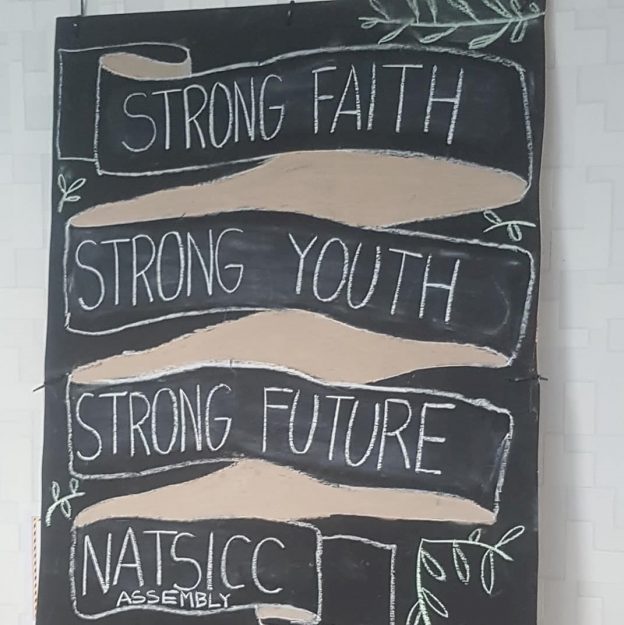 STRONG FAITH
STRONG YOUTH
STRONG FUTURE
NATSICC
ASSEMBLY